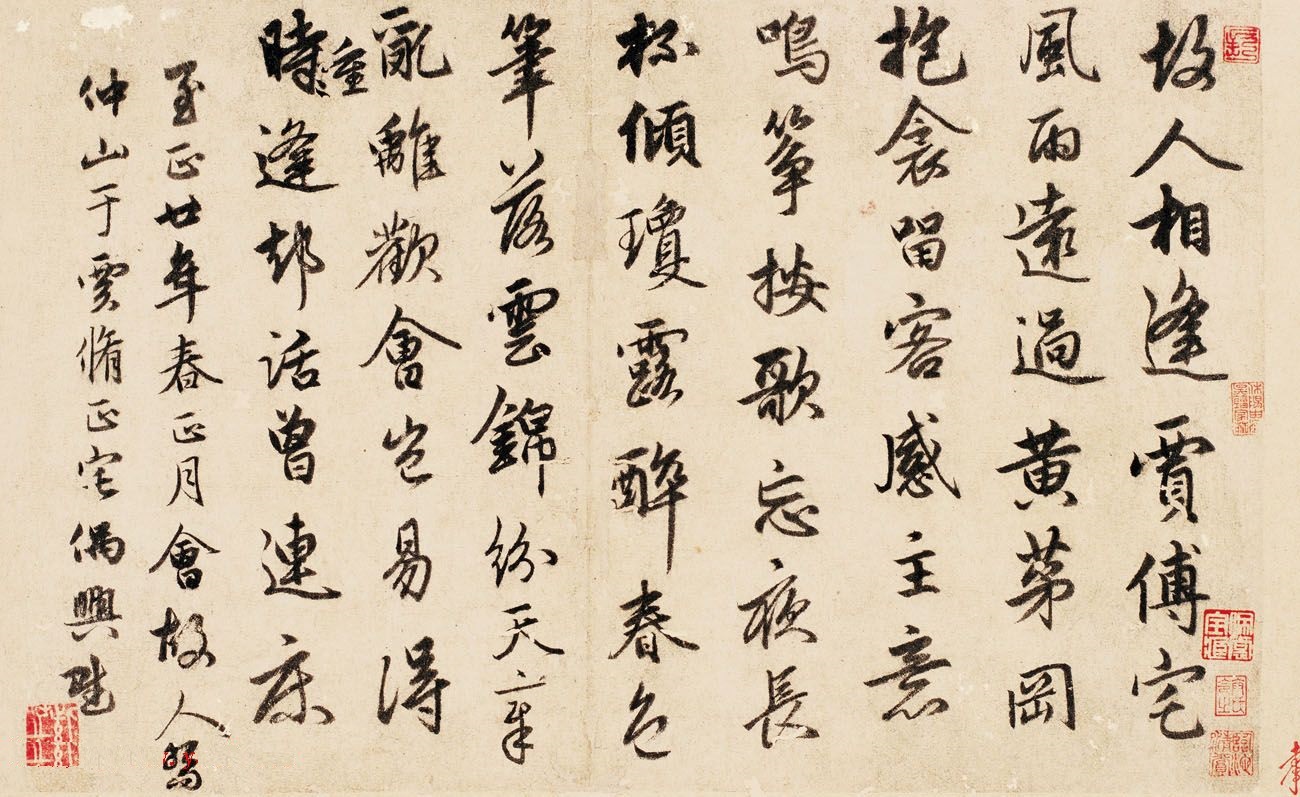 故人相逢賈傅宅
風雨遠過黃茅岡
抱衾留客感主意
鳴箏按歌忘夜長
杯傾瓊露醉春色
筆落雲錦紛天章
亂離歡會豈易得
時重逢却話曾連床
至正廿年春正月會故人
仲山于賈脩正宅偶興